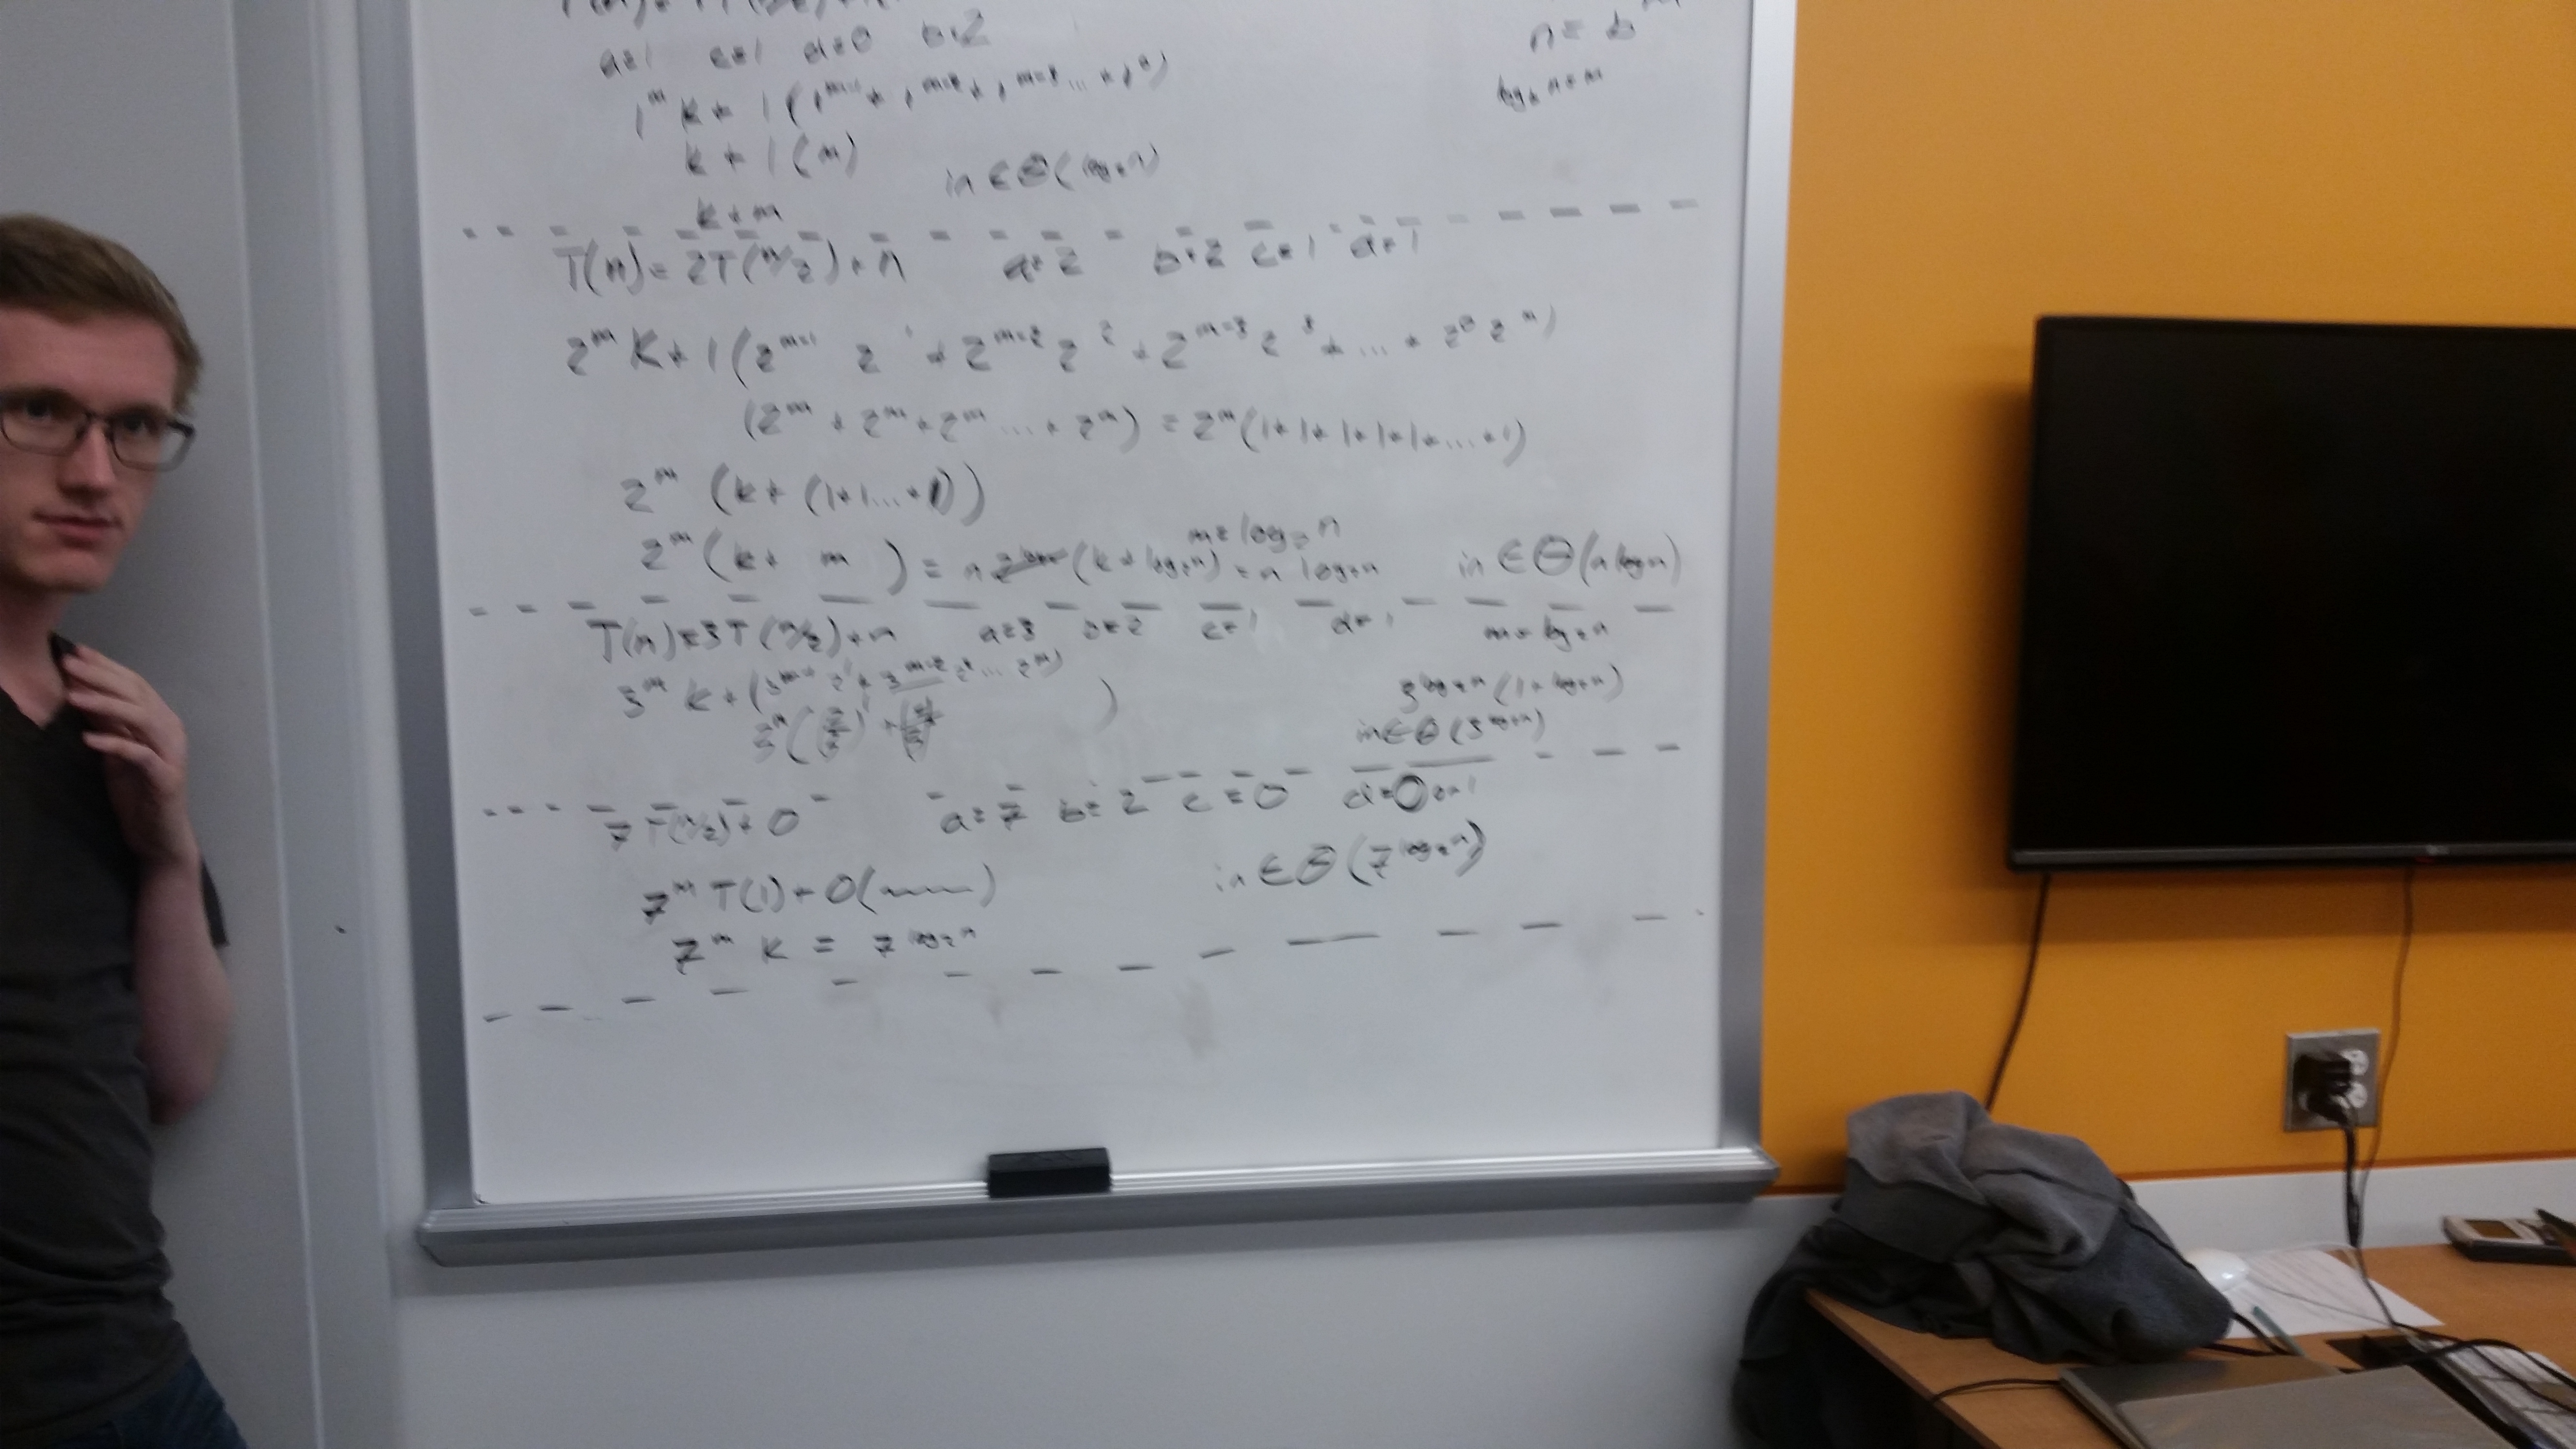 a=1 c=1 d=0 b=2
n = b^m
log_b n = m
1^m k + 1(1^{m-1} + 1^{m-2} + 1^{m-3} ... + 1^0)
k + 1(m)
in ∈ Θ(log₂n)
k + m
T(n) = 2T(n/2) + n a=2 b=2 c=1 d=1
2^m K + 1(2^{m-1} 2^1 + 2^{m-2} 2^2 + 2^{m-3} 2^3 + ... + 2^0 2^m)
(2^m + 2^m + 2^m ... + 2^m) = 2^m(1+1+1+1+1+...+1)
2^m (k + (1+1...+1))
m = log₂n
2^m (k + m) = n (k + log₂n) = n log₂n in ∈ Θ(n log n)
T(n) = 3T(n/2) + n a=3 b=2 c=1 d=1 m = log₂n
3^m k + (3^{m-1} 2^1 + 3^{m-2} 2^2 ... 2^m)
3^{log₂n}(1 + log₂n)
3^m((2/3)^1 + )
in ∈ Θ(3^{log₂n})
7T(n/2) + 0 a=7 b=2 c=0 d=0 or 1
7^m T(1) + 0( )
in ∈ Θ(7^{log₂n})
7^m K = 7^{log₂n}